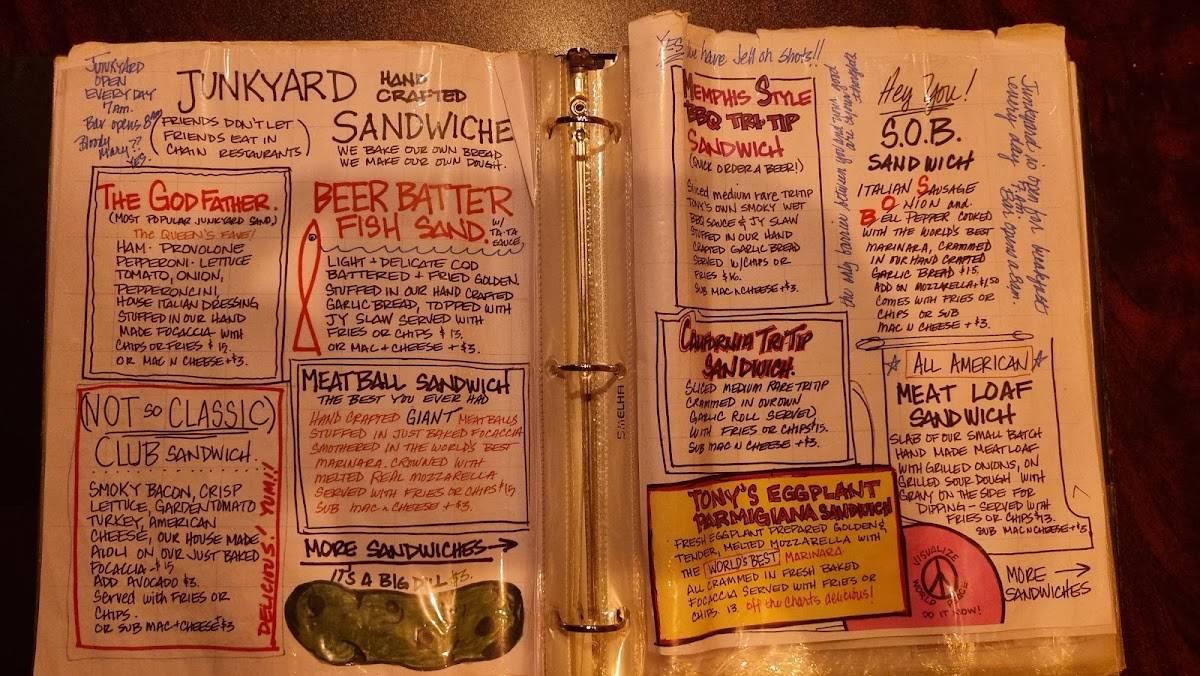 JUNKYARD
OPEN
EVERY DAY
7am.
Bar opens 8am
Bloody
Mary??
Yes.
JUNKYARD HAND
CRAFTED
SANDWICHE
(FRIENDS DON'T LET
FRIENDS EAT IN
CHAIN RESTAURANTS)
WE BAKE OUR OWN BREAD
WE MAKE OUR OWN DOUGH.
THE GOD FATHER.
(MOST POPULAR JUNKYARD SAND.)
THE QUEEN'S FAVE!
HAM · PROVOLONE
PEPPERONI · LETTUCE
TOMATO, ONION,
PEPPERONCINI,
HOUSE ITALIAN DRESSING
STUFFED IN OUR HAND
MADE FOCACCIA WITH
CHIPS OR FRIES $15.
OR MAC N CHEESE +$3.
BEER BATTER
FISH SAND. W/
TA-TA
SAUCE,
LIGHT + DELICATE COD
BATTERED + FRIED GOLDEN.
STUFFED IN OUR HAND CRAFTED
GARLIC BREAD, TOPPED WITH
JY SLAW SERVED WITH
FRIES OR CHIPS $13.
OR MAC + CHEESE + $3.
MEATBALL SANDWICH
THE BEST YOU EVER HAD
HAND CRAFTED GIANT MEATBALLS
STUFFED IN JUST BAKED FOCACCIA
SMOTHERED IN THE WORLD'S BEST
MARINARA. CROWNED WITH
MELTED REAL MOZZARELLA
SERVED WITH FRIES OR CHIPS $15
SUB MAC N CHEESE +$3.
(NOT SO CLASSIC)
CLUB SANDWICH.
SMOKY BACON, CRISP
LETTUCE, GARDEN TOMATO
TURKEY, AMERICAN
CHEESE, OUR HOUSE MADE
AIOLI ON OUR JUST BAKED
FOCACCIA - $15
ADD AVOCADO $3.
Served with FRIES OR
CHIPS.
OR SUB MAC + CHEESE $3
DELICIOUS! YUM!!
MORE SANDWICHES →
IT'S A BIG DILL $3.
SMELHA
YES we have Jell oh shots!!
MEMPHIS STYLE
BBQ TRI-TIP
SANDWICH
(QUICK ORDER A BEER!)
Sliced medium rare TRITIP
TONY'S OWN SMOKY WET
BBQ SAUCE & JY SLAW
STUFFED IN OUR HAND
CRAFTED GARLIC BREAD
SERVED W/CHIPS OR
FRIES $16.
SUB MAC N CHEESE +$3.
the only barrier between good and
Hey You!
S.O.B.
SANDWICH
ITALIAN SAUSAGE
ONION and
BELL PEPPER COOKED
WITH THE WORLD'S BEST
MARINARA, CRAMMED
IN OUR HAND CRAFTED
GARLIC BREAD $15.
ADD ON MOZZARELLA +$1.50
COMES WITH FRIES OR
CHIPS OR SUB
MAC N CHEESE +$3.
Junkyard is open for breakfast
every day 7am. Bar opens 8am.
CALIFORNIA TRI TIP
SANDWICH.
SLICED MEDIUM RARE TRITIP
CRAMMED IN OUR OWN
GARLIC ROLL SERVED
WITH FRIES OR CHIPS $15.
SUB MAC N CHEESE +$3.
☆ ALL AMERICAN ☆
MEAT LOAF
SANDWICH
SLAB OF OUR SMALL BATCH
HAND MADE MEATLOAF
WITH GRILLED ONIONS, ON
GRILLED SOUR DOUGH WITH
GRAVY ON THE SIDE FOR
DIPPING - SERVED WITH
FRIES OR CHIPS $13.
SUB MAC N CHEESE +$3
TONY'S EGGPLANT
PARMIGIANA SANDWICH
FRESH EGGPLANT PREPARED GOLDEN &
TENDER, MELTED MOZZARELLA WITH
THE WORLD'S BEST MARINARA
ALL CRAMMED IN FRESH BAKED
FOCACCIA SERVED WITH FRIES OR
CHIPS 13. off the charts delicious!
VISUALIZE
WORLD PEACE
DO IT NOW!
MORE →
SANDWICHES